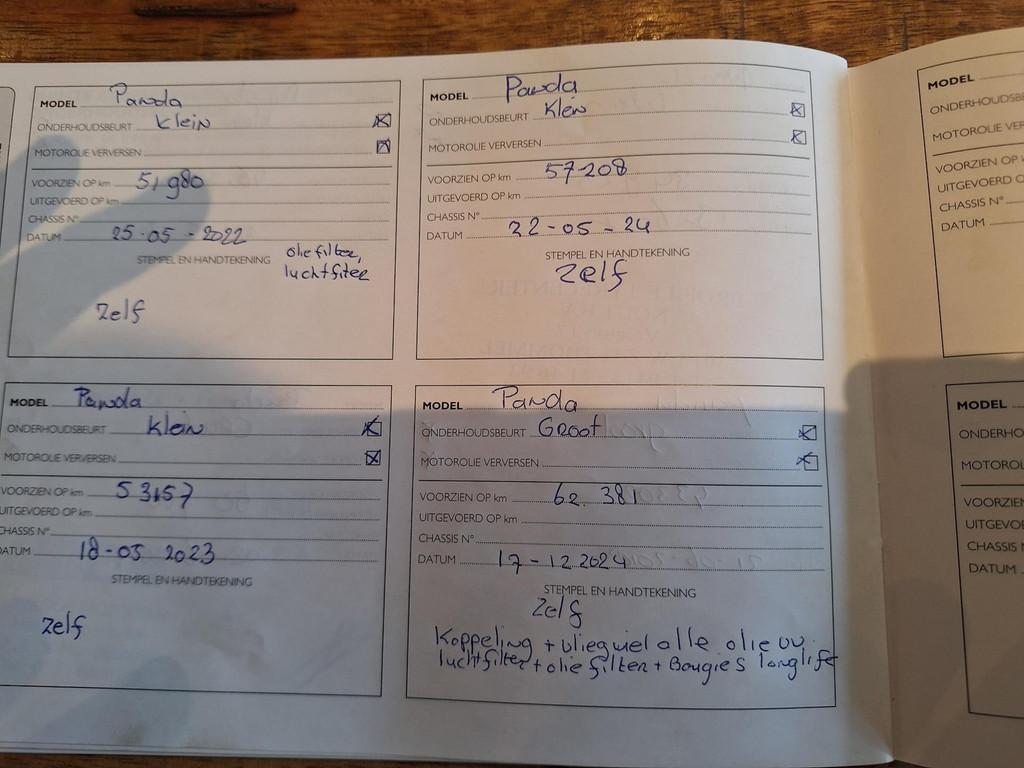 MODEL Panda
ONDERHOUDSBEURT Klein
MOTOROLIE VERVERSEN
VOORZIEN OP km 51 980
UITGEVOERD OP km
CHASSIS N°
DATUM 25-05-2022
STEMPEL EN HANDTEKENING oliefilter,
luchtfilter
Zelf
MODEL Panda
ONDERHOUDSBEURT Klein
MOTOROLIE VERVERSEN
VOORZIEN OP km 57-208
UITGEVOERD OP km
CHASSIS N°
DATUM 22-05-24
STEMPEL EN HANDTEKENING
Zelf
MODEL Panda
ONDERHOUDSBEURT Klein
MOTOROLIE VERVERSEN
VOORZIEN OP km 53157
UITGEVOERD OP km
CHASSIS N°
DATUM 18-05 2023
STEMPEL EN HANDTEKENING
Zelf
MODEL Panda
ONDERHOUDSBEURT Groot
MOTOROLIE VERVERSEN
VOORZIEN OP km 62.381
UITGEVOERD OP km
CHASSIS N°
DATUM 17-12 2024
STEMPEL EN HANDTEKENING
Zelf
Koppeling + vliegwiel alle olie vv.
luchtfilter + olie filter + Bougies longlife
MODEL
ONDERHOUDSBE
MOTOROLIE VER
VOORZIEN OP k
UITGEVOERD O
CHASSIS N°
DATUM
MODEL
ONDERHO
MOTOROL
VOORZIEN
UITGEVOE
CHASSIS N
DATUM